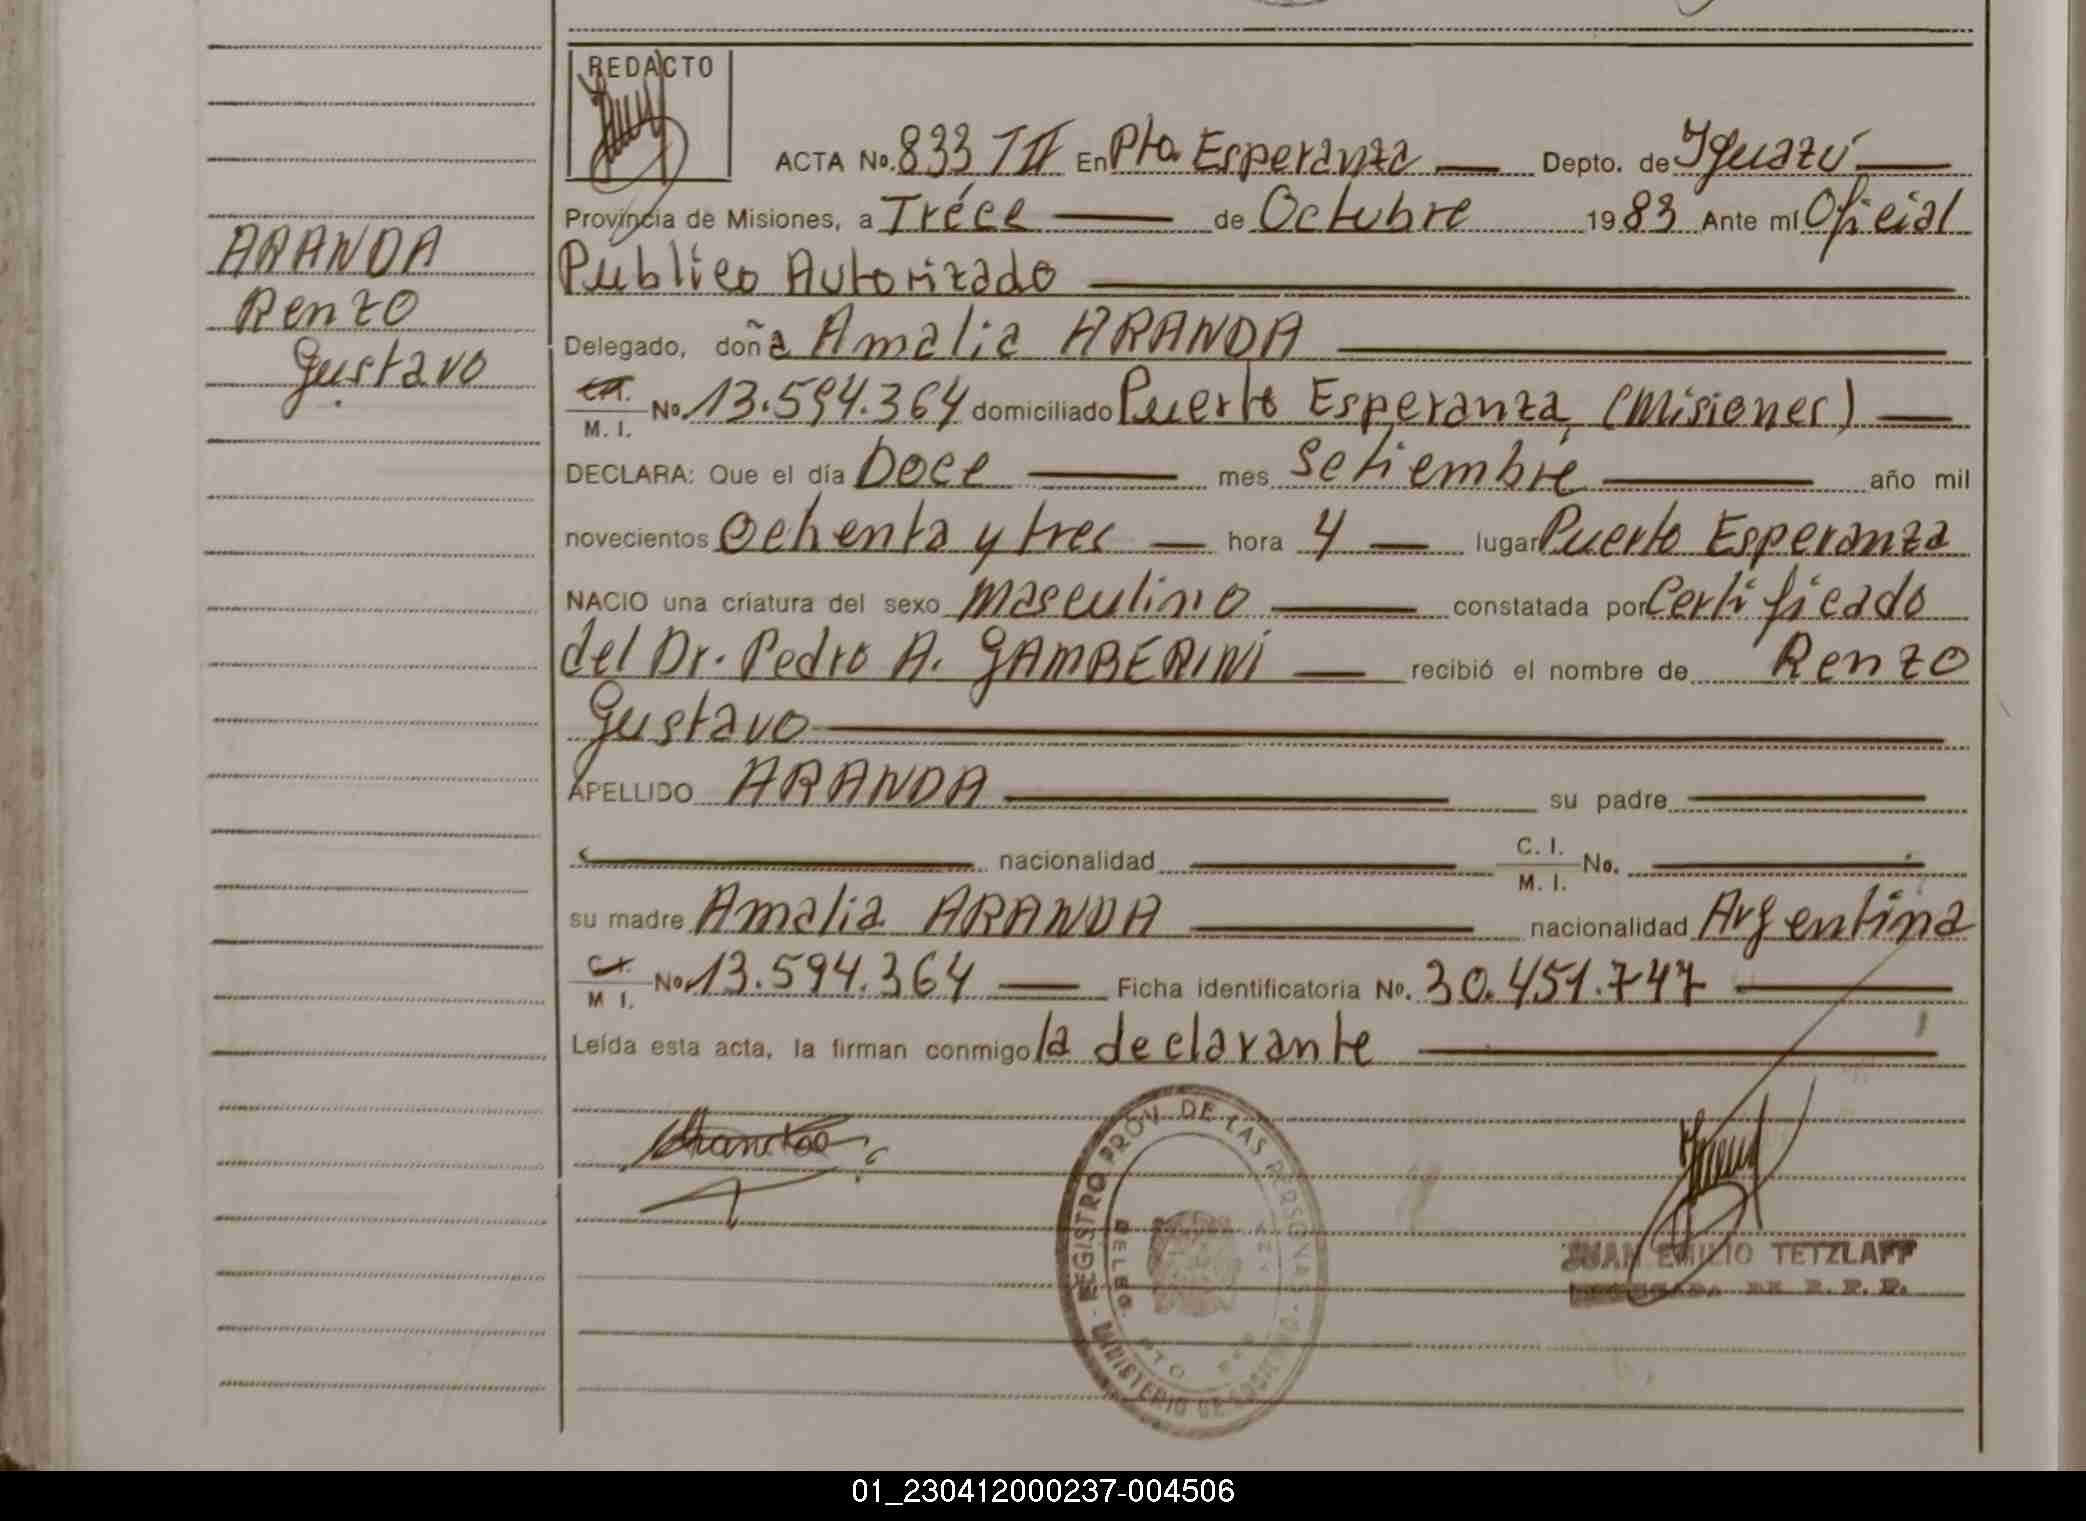 REDACTO
ACTA No. 833 TII En Pto. Esperanza Depto. de Iguazú
Provincia de Misiones, a Tréce de Octubre 1983 Ante mí Oficial
Publico Autorizado
Delegado, doña Amalia ARANDA
C.I. M. I. No. 13.594.364 domiciliado Puerto Esperanza, (Misiones)
DECLARA: Que el día Doce mes Setiembre año mil
novecientos Ochenta y tres hora 4 lugar Puerto Esperanza
NACIO una criatura del sexo masculino constatada por Certificado
del Dr. Pedro A. GAMBERINI recibió el nombre de Renzo
Gustavo
APELLIDO ARANDA su padre
nacionalidad C. I. M. I. No.
su madre Amalia ARANDA nacionalidad Argentina
C.I. M I. No. 13.594.364 Ficha identificatoria No. 30.451.747
Leída esta acta, la firman conmigo la declarante
ARANDA
Renzo
Gustavo
REGISTRO PROV. DE LAS PERSONAS
MINISTERIO DE GOBIERNO
DELEG. PTO. ESP.
JUAN EMILIO TETZLAFF
DE R. P. P.
01_230412000237-004506